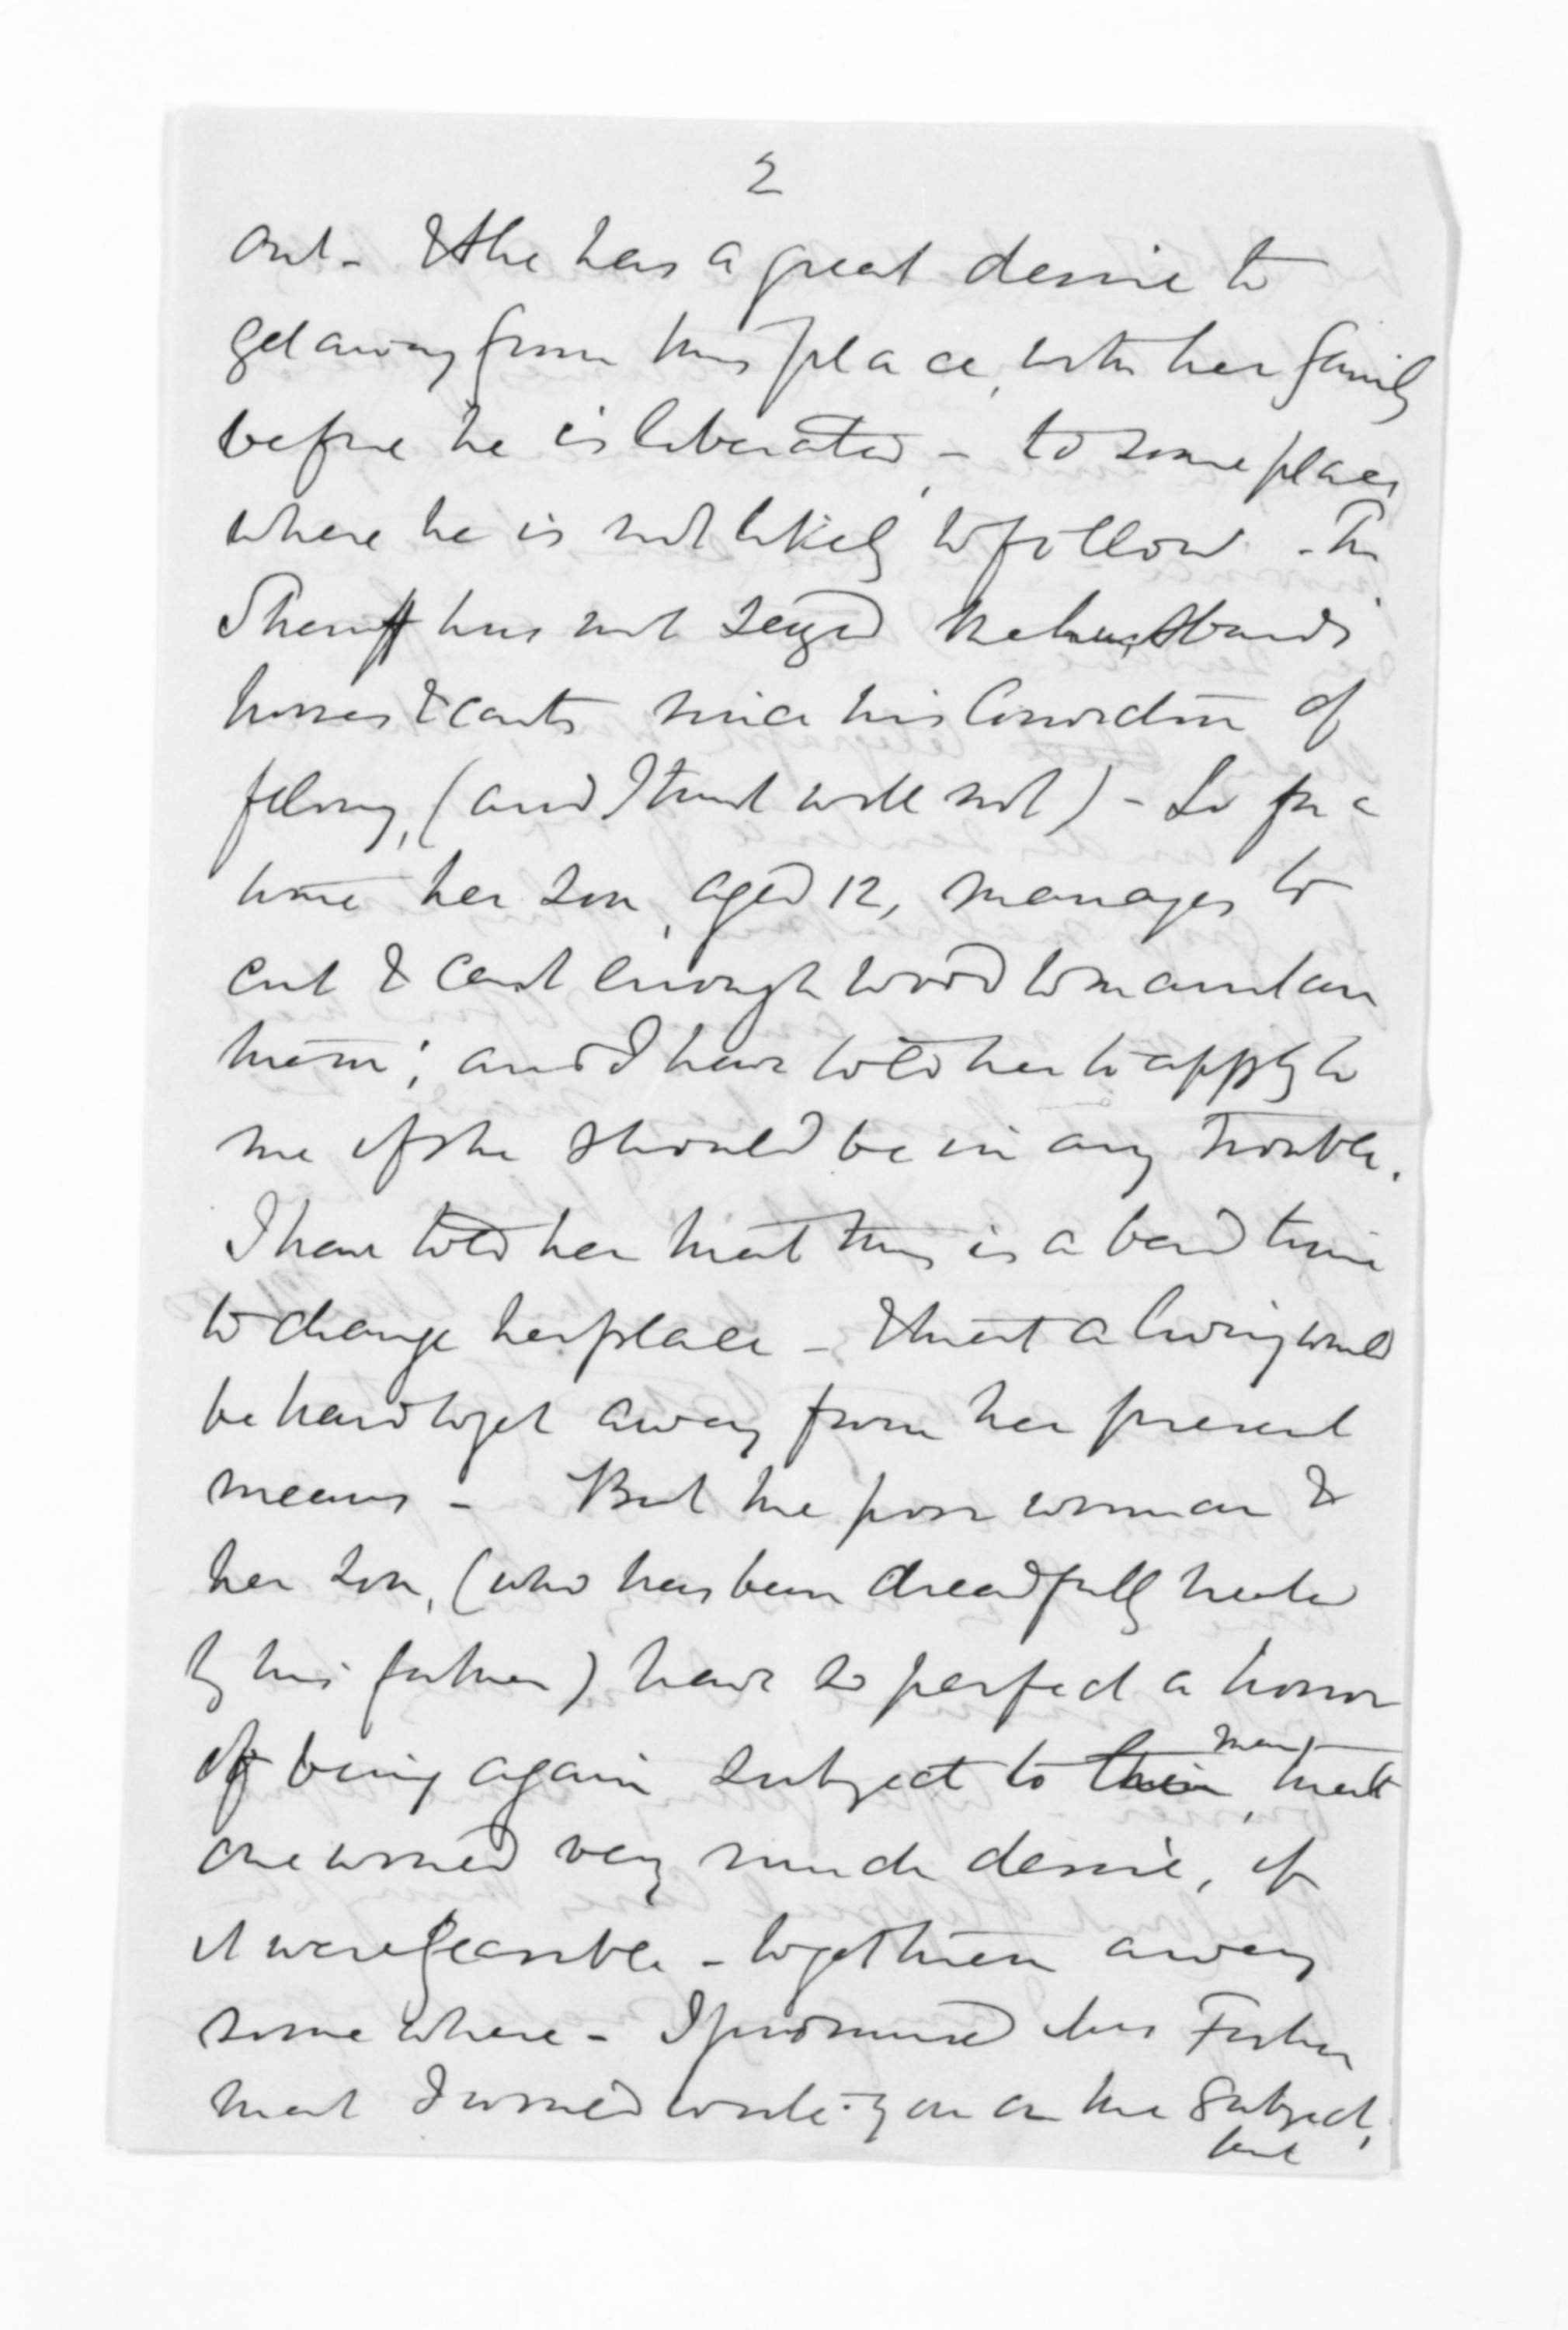 2
out - & she has a great desire to
get away from this place, with her family
before he is liberated, - to some place,
where he is not likely to follow. - The
Sheriff has not seized the husband's
horses & carts since his Conviction of
felony, (and I trust will not) - So for a
time her son, aged 12, manages to
cut & cart enough wood to maintain
them; and I have told her to apply to
me if she should be in any trouble.
I have told her that this is a bad time
to change her place - & that a living would
be hard to get away from her present
means - But the poor woman &
her son, (who has been dreadfully treated
by his father) have so perfect a horror
of being again subject to this man, that
one would very much desire, if
it were feasible - to get them away
some where - I promised this Father
that I would write you on the subject,
but